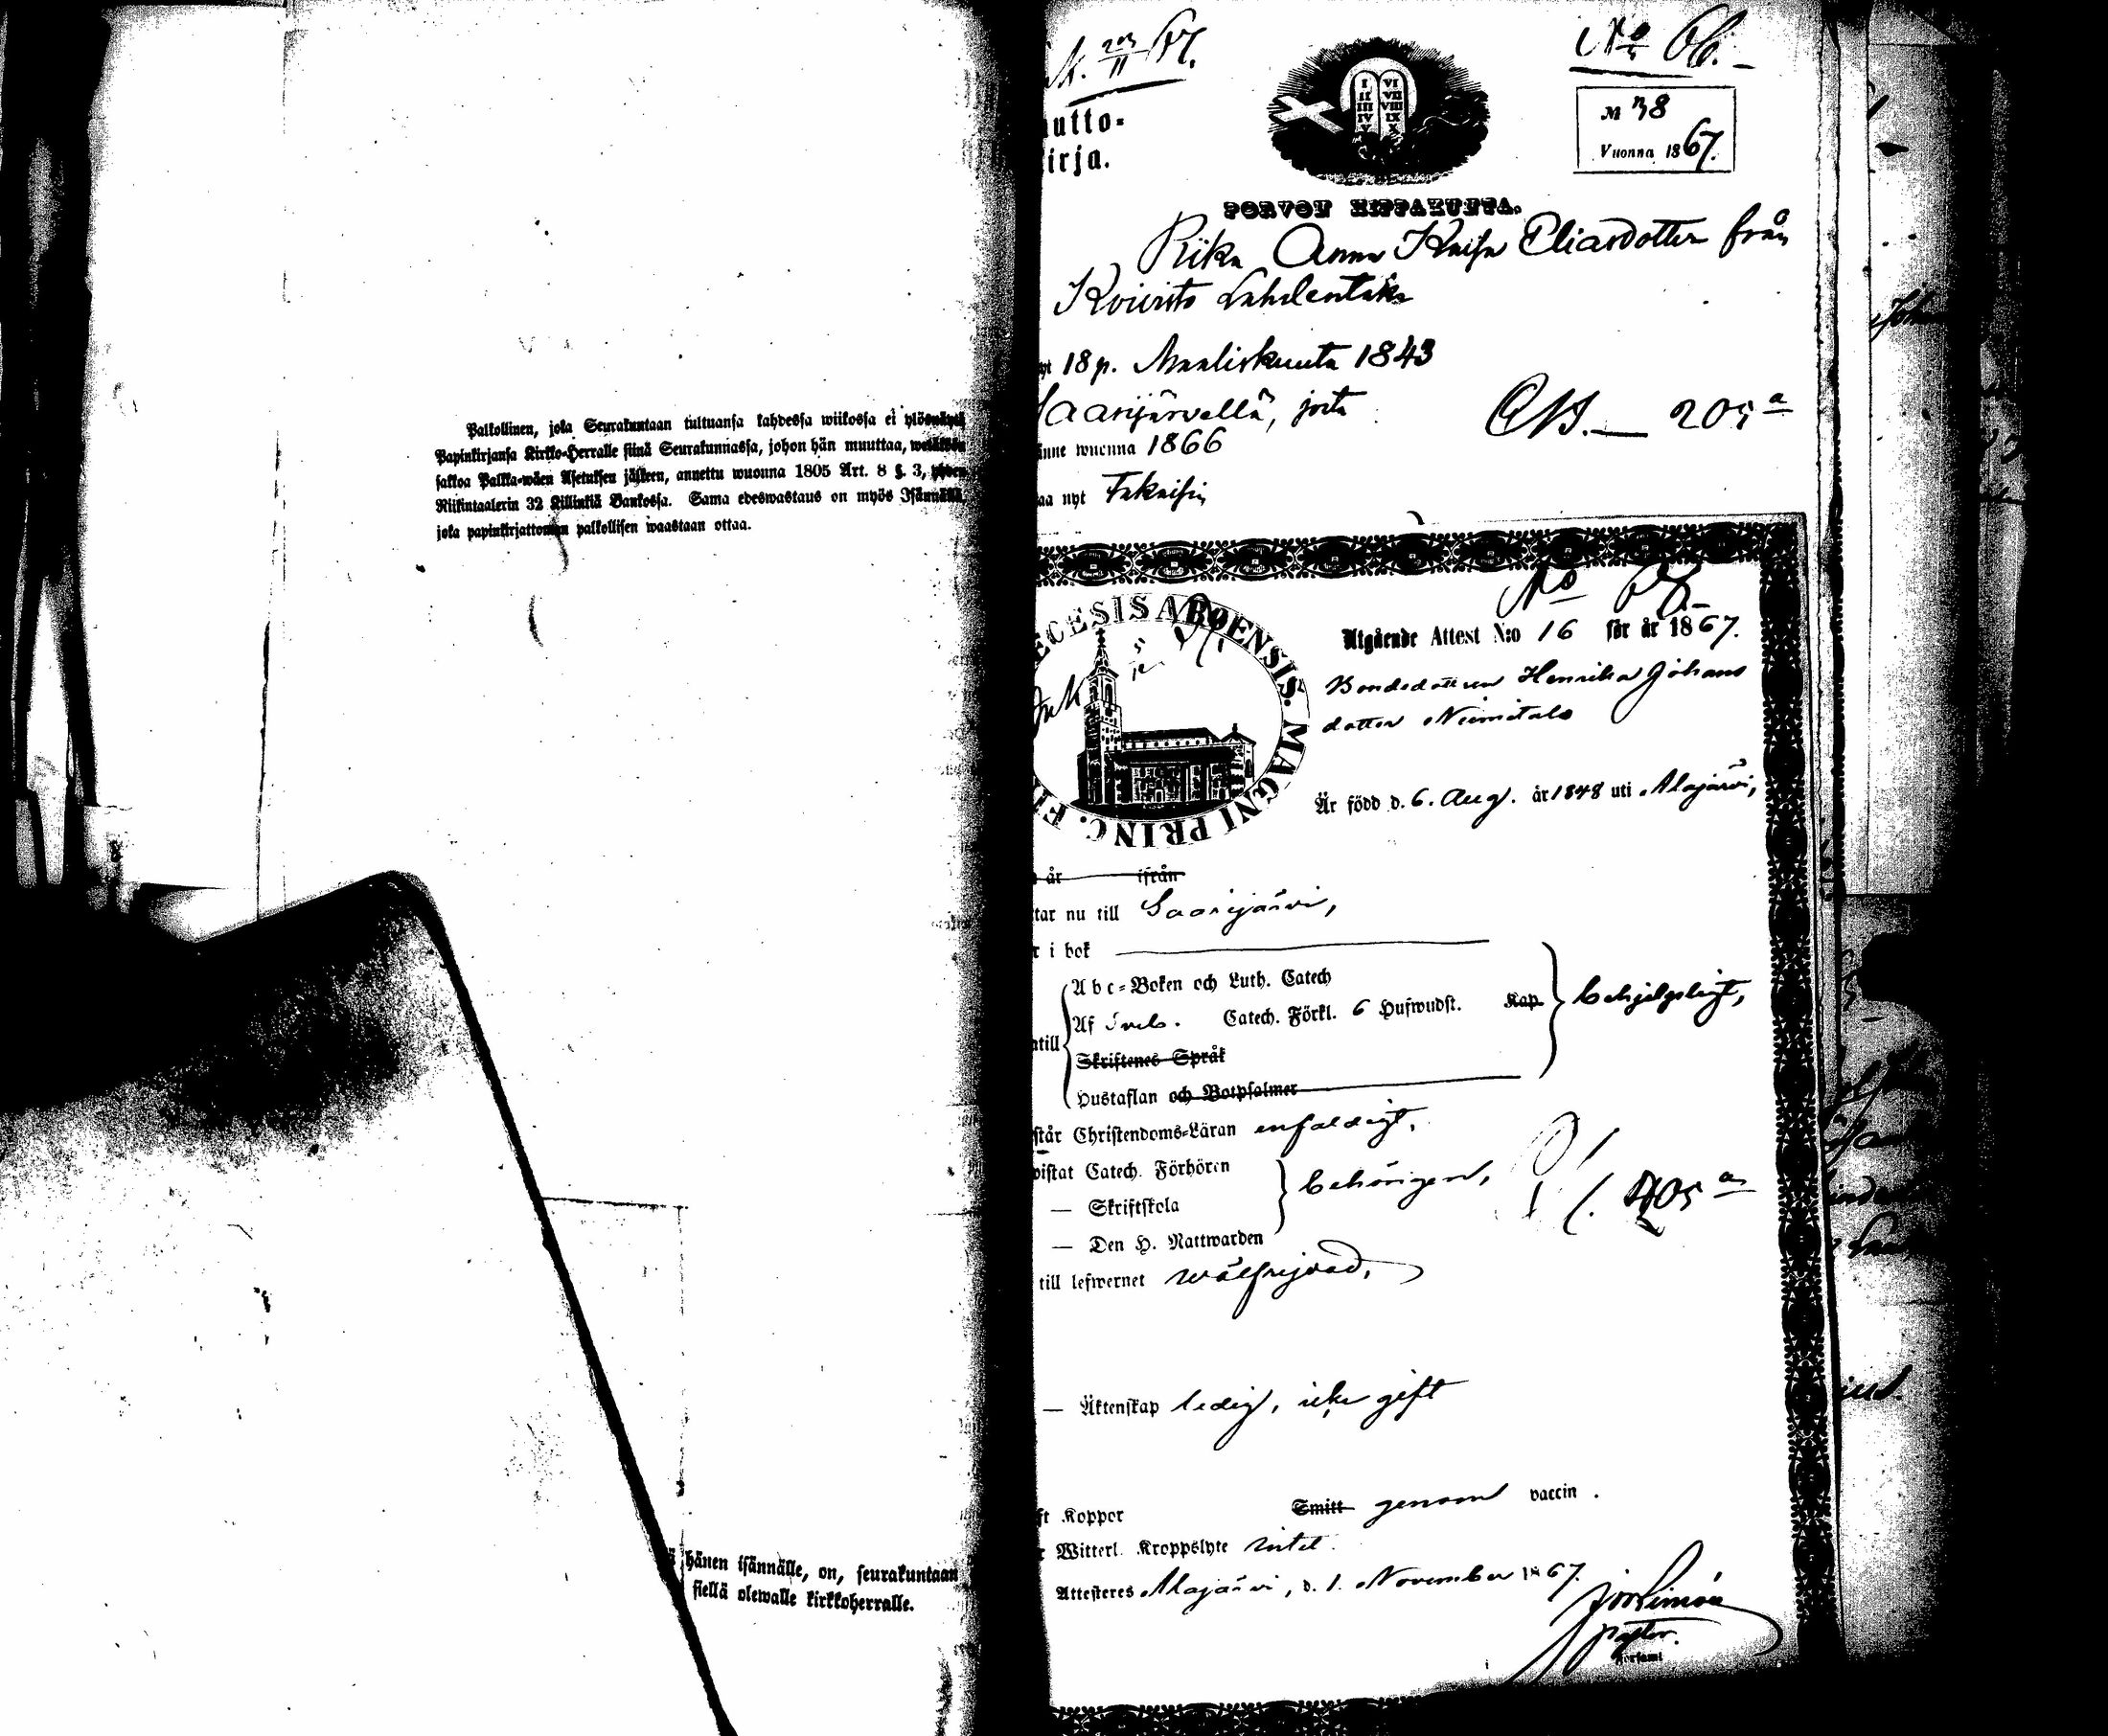 Palkollinen, joka Seurakuntaan tultuansa kahdessa wiikossa ei ylösnäytä
Papinkirjansa Kirkko-Herralle siinä Seurakunnassa, johon hän muuttaa, wetäköön
sakkoa Palkka-wäen Asetuksen jälkeen, annettu wuonna 1805 Art. 8 §. 3, yhden
Riikintaalerin 32 Killinkiä Bankossa. Sama edeswastaus on myös Isännällä,
joka papinkirjattoman palkollisen waastaan ottaa.
hänen isännälle, on, seurakuntaan
siellä olewalle kirkkoherralle.
utto-
irja.
I II III IV V VI VII VIII IX X
№ 38
Vuonna 1867.
PORVON HIPPAKUNTA.
Piika Anna Kaisa Eliasdotter från
Koivisto Lahdentaka
18 p. Maaliskuuta 1843
Saarijärvellä, josta
änne wuonna 1866
205 a
aa nyt
No
ECESIS ABOENSIS. MAGNI PRINC. F
Utgående Attest N:o 16 för år 1867.
Bondedottren Henrika Johans
dotter Niemitalo
Är född d. 6. Aug. år 1848 uti Alajärvi,
år ifrån
tar nu till Saarijärvi,
r i bok
Abc-Boken och Luth. Catech
Af Catech. Förkl. 6 Hufwudst. Kap
behjelpligt,
till
Skriftenes Språk
Hustaflan och Botpsalmer
står Christendoms-Läran enfaldigt,
wistat Catech. Förhören
— Skriftskola
behörigen,
205 a
— Den H. Nattwarden
till lefwernet wälfrejdad,
— Äktenskap ledig, icke gift
ft Koppor Smitt genom vaccin .
r Witterl. Kroppslyte intet.
Attesteres Alajärvi, d. 1. November 1867.
pastor.